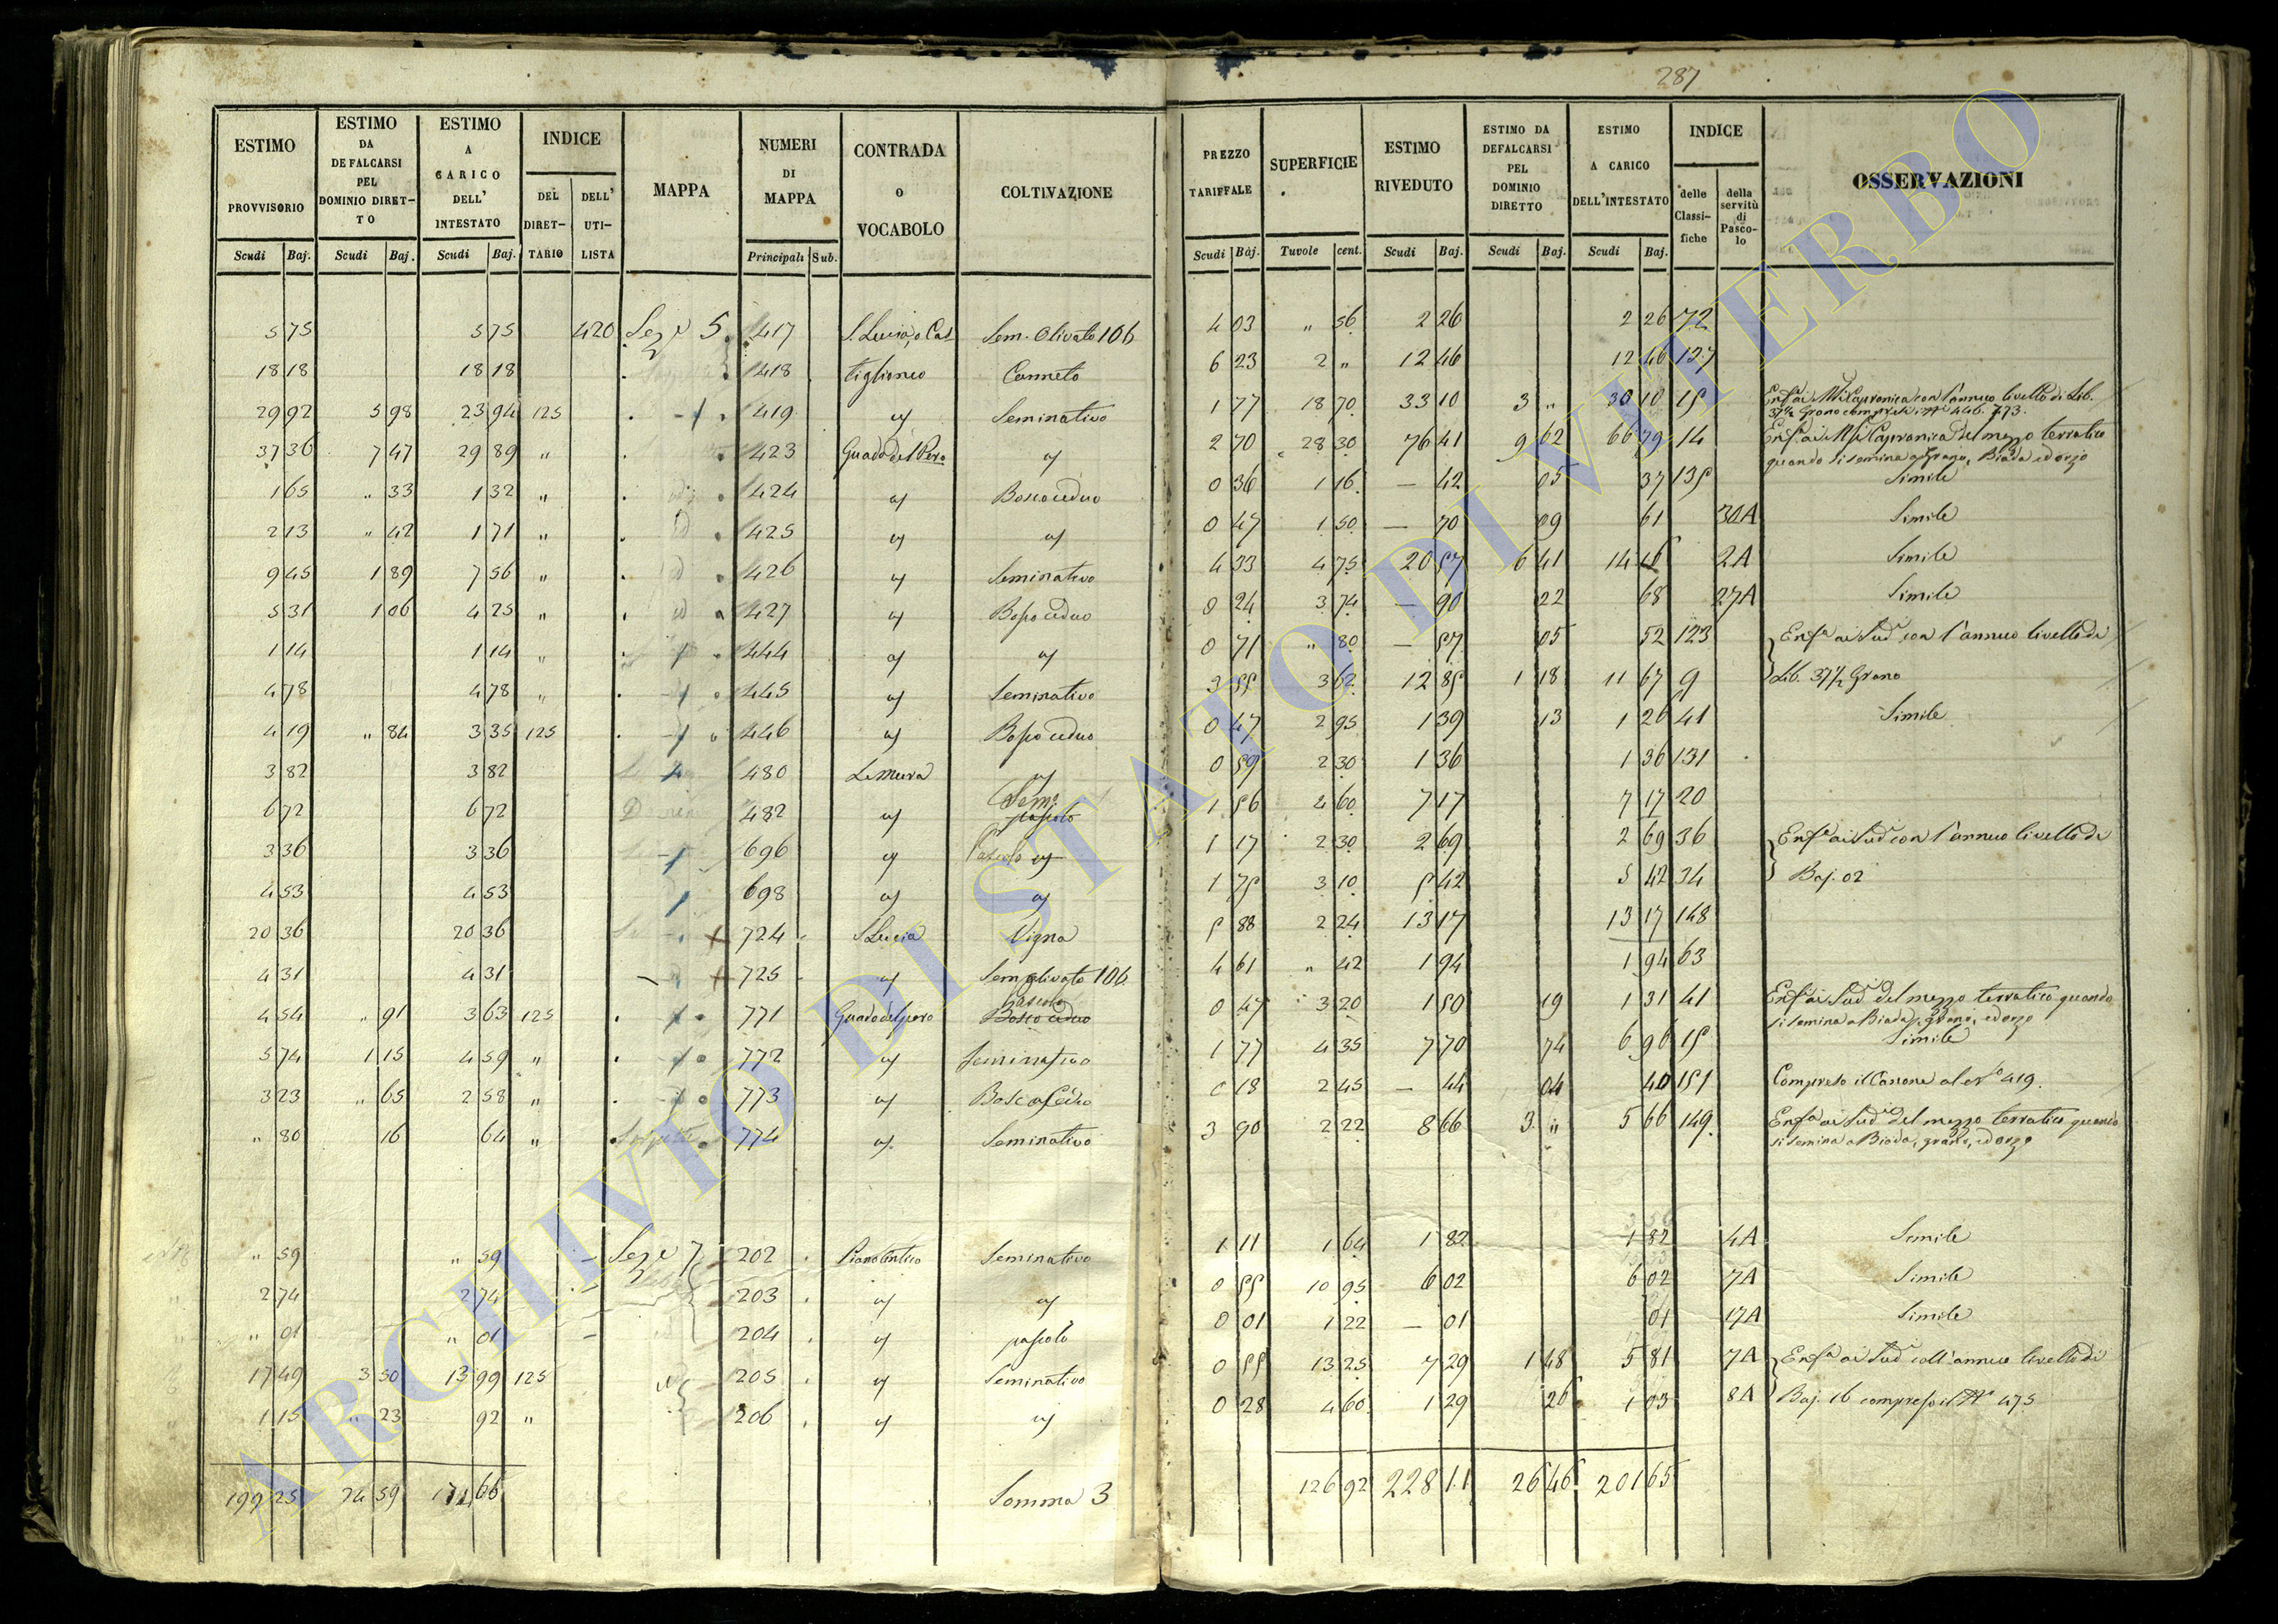 287
ESTIMO PROVVISORIO | ESTIMO DA DEFALCARSI PEL DOMINIO DIRETTO | ESTIMO A CARICO DELL' INTESTATO | INDICE DEL DIRETTARIO | DELL' UTILISTA | MAPPA | NUMERI DI MAPPA | CONTRADA o VOCABOLO | COLTIVAZIONE | PREZZO TARIFFALE | SUPERFICIE | ESTIMO RIVEDUTO | ESTIMO DA DEFALCARSI PEL DOMINIO DIRETTO | ESTIMO A CARICO DELL'INTESTATO | INDICE delle Classifiche | della servitù di Pascolo | OSSERVAZIONI
Scudi Baj. | Scudi Baj. | Scudi Baj. | Principali Sub. | Scudi Baj. | Tavole cent. | Scudi Baj. | Scudi Baj. | Scudi Baj.
5 75 | 5 75 | 420 | Sez.e 5. | 417 | S. Lucia, o Cas | Sem. Olivato 106 | 4 03 | " 56 | 2 26 | 2 26 | 72
18 18 | 18 18 | 418 | Tiglioneo | Canneto | 6 23 | 2 " | 12 46 | 12 46 | 127
29 92 | 5 98 | 23 94 | 125 | 419 | Seminativo | 1 77 | 18 70 | 33 10 | 3 " | 30 10 | 15 | con l'annuo livello di Lib. 37½ Grano
37 36 | 7 47 | 29 89 | " | 423 | Guado del Pero | 2 70 | 28 30 | 76 41 | 9 62 | 66 79 | 14 | del mezzo terratico quando si semina a Grano, Biada ed orzo
1 65 | " 33 | 1 32 | " | 424 | Bosco ceduo | 0 36 | 1 16 | — 42 | 05 | 37 | 135 | Simile
2 13 | " 42 | 1 71 | " | 425 | 0 47 | 1 50 | — 70 | 09 | 61 | 30A | Simile
9 45 | 1 89 | 7 56 | " | 426 | Seminativo | 4 33 | 4 75 | 20 57 | 6 41 | 14 16 | 2A | Simile
5 31 | 1 06 | 4 25 | " | 427 | Bosco ceduo | 0 24 | 3 74 | — 90 | 22 | 68 | 27A | Simile
1 14 | 1 14 | " | 444 | 0 71 | " 80 | — 57 | 05 | 52 | 123 | Enf.a ai Sud.i con l'annuo livello di
4 78 | 4 78 | " | 445 | Seminativo | 3 55 | 3 62 | 12 85 | 1 18 | 11 67 | 9 | Lib. 37½ Grano
4 19 | " 84 | 3 35 | 125 | 446 | Bosco ceduo | 0 47 | 2 95 | 1 39 | 13 | 1 26 | 41 | Simile
3 82 | 3 82 | 480 | Le Mura | 0 59 | 2 30 | 1 36 | 1 36 | 131
6 72 | 6 72 | 482 | Sem. pascolo | 1 56 | 4 60 | 7 17 | 7 17 | 20
3 36 | 3 36 | 696 | Pascolo | 1 17 | 2 30 | 2 69 | 2 69 | 36 | Enf.a ai Sud.i con l'annuo livello di
4 53 | 4 53 | 698 | 1 75 | 3 10 | 5 42 | 5 42 | 34 | Baj. 02
20 36 | 20 36 | 724 | S. Lucia | Vigna | 5 88 | 2 24 | 13 17 | 13 17 | 148
4 31 | 4 31 | 725 | Sem. olivato 106 | 4 61 | " 42 | 1 94 | 1 94 | 63
4 54 | " 91 | 3 63 | 125 | 771 | Guado del pero | Bosco ceduo | 0 47 | 3 20 | 1 50 | 19 | 1 31 | 41 | Enf.a ai Sud.i del mezzo terratico quando si semina a Biada, grano, ed orzo
5 74 | 1 15 | 4 59 | " | 772 | Seminativo | 1 77 | 4 35 | 7 70 | 74 | 6 96 | 15 | Simile
3 23 | " 65 | 2 58 | " | 773 | Bosco Ceduo | 0 18 | 2 45 | — 44 | 04 | 40 | 151 | Compreso il Canone al n.o 419.
" 80 | 16 | 64 | " | 774 | Seminativo | 3 90 | 2 22 | 8 66 | 3 " | 5 66 | 149. | Enf.a ai Sud.i del mezzo terratico quando si semina a Biada, grano, ed orzo
" 59 | " 59 | Sez.e 7 | 202 | Seminativo | 1 11 | 1 64 | 1 82 | 1 82 | 4A | Simile
2 74 | 2 74 | 203 | 0 55 | 10 95 | 6 02 | 6 02 | 7A | Simile
" 01 | " 01 | 204 | pascolo | 0 01 | 1 22 | — 01 | 01 | 17A | Simile
17 49 | 3 50 | 13 99 | 125 | 205 | Seminativo | 0 55 | 13 25 | 7 29 | 1 48 | 5 81 | 7A | Enf.a ai Sud.i coll'annuo livello di
1 15 | " 23 | 92 | " | 206 | 0 28 | 4 60 | 1 29 | 26 | 1 03 | 8A | Baj. 16 compreso il N.o 475
199 25 | 24 59 | 174 66 | Somma 3 | 126 92 | 228 11 | 26 46 | 201 65
ARCHIVIO DI STATO DI VITERBO